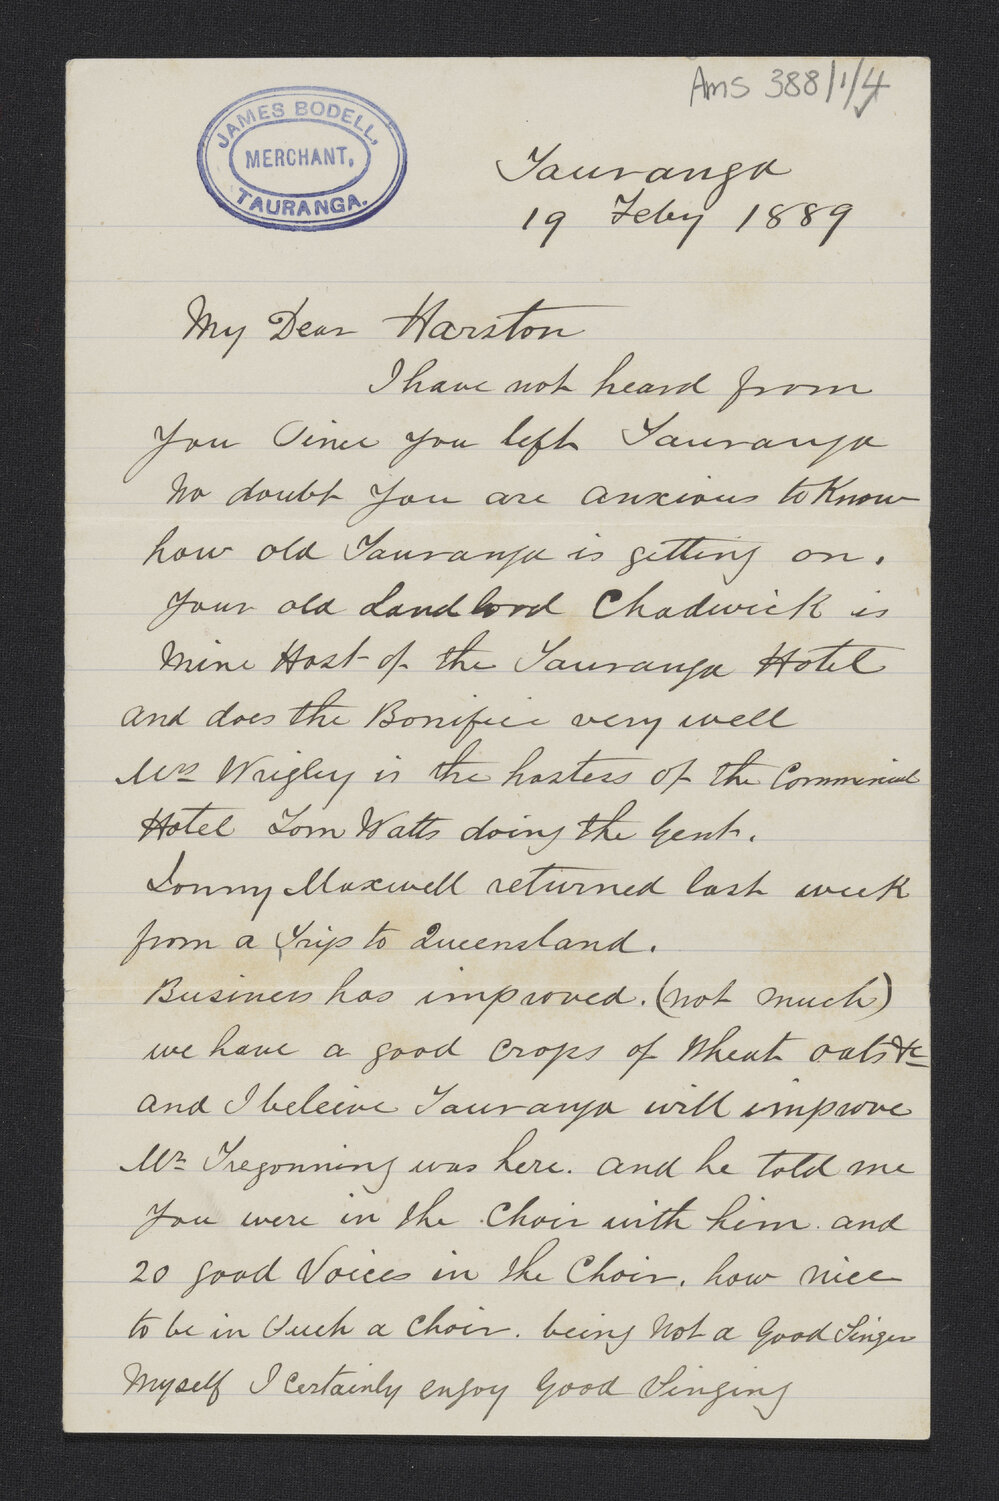 Ams 388/1/4
JAMES BODELL,
MERCHANT,
TAURANGA.
Tauranga
19 Feby 1889
My Dear Harston
I have not heard from
You Since you left Tauranga
No doubt you are anxious to Know
how old Tauranga is getting on.
Your old Landlord Chadwick is
Mine Host of the Tauranga Hotel
and does the Boniface very well
Mrs Wrigley is the hostess of the Commercial
Hotel Tom Watts doing the Gent.
Sonny Maxwell returned last week
from a Trip to Queensland.
Business has improved. (not much)
we have a good crops of Wheat oats &c
and I beleive Tauranga will improve
Mr Tregonning was here. and he told me
You were in the Choir with him. and
20 good Voices in the Choir. how nice
to be in Such a Choir. being Not a Good Singer
Myself I certainly enjoy Good Singing